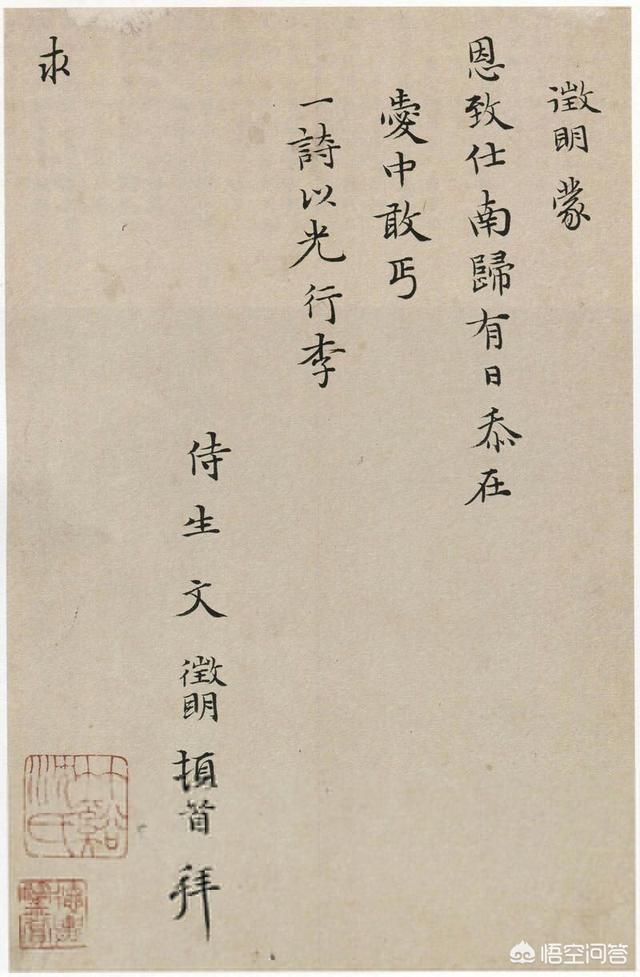 徵明蒙
恩致仕南歸有日忝在
愛中敢丐
一詩以光行李
侍生文徵明頓首拜
求
悟空问答